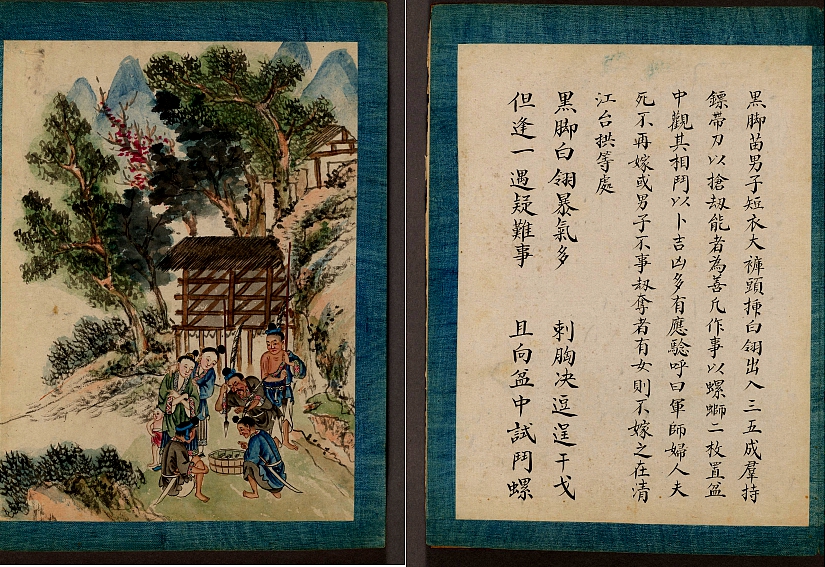 黑脚苗男子短衣大褲頭揷白翎出入三五成羣持
鏢帶刀以搶刼能者為善凡作事以螺螄二枚置盆
中觀其相鬥以卜吉凶多有應驗呼曰軍師婦人夫
死不再嫁或男子不事刼奪者有女則不嫁之在清
江台拱等處
黑脚白翎暴氣多 刺胸决逗逞干戈
但逢一遇疑難事 且向盆中試鬥螺